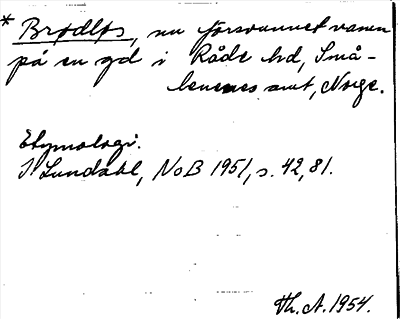 * Brødløs, nu forsvunnet vanen
på en gd i Råde hd, Små-
lenenes amt, Norge.
Etymologi.
I. Lundahl, NoB 1951, s. 42, 81.
Th. A. 1954.